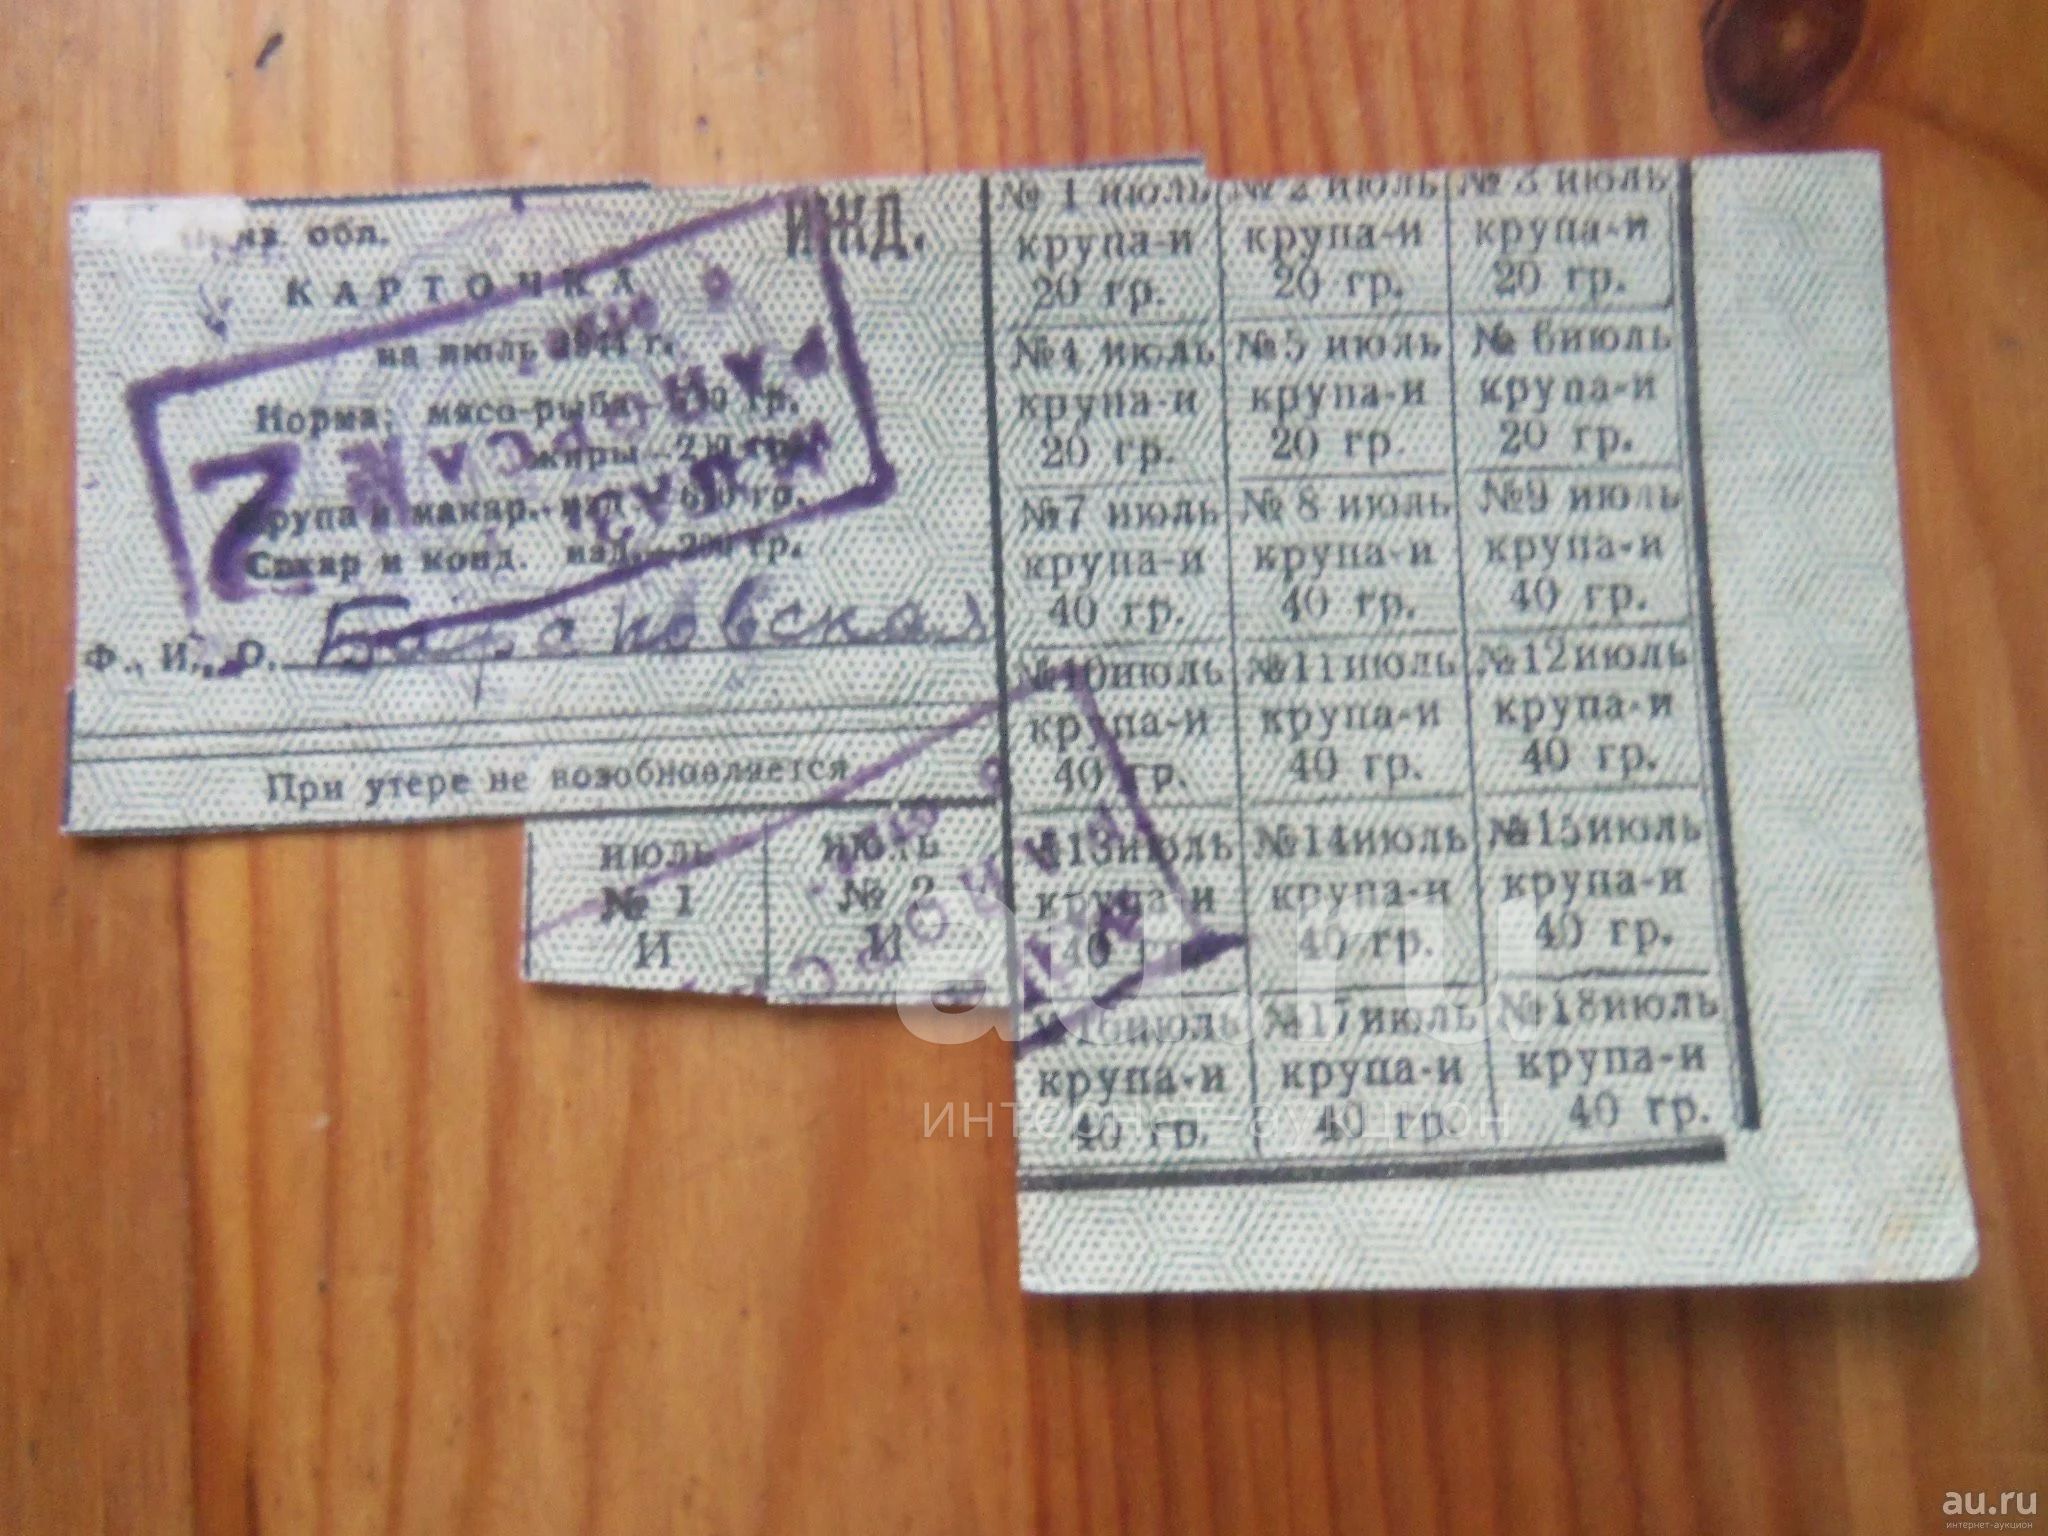 обл.
ИЖД.
КАРТОЧКА
на июль 1944 г.
Норма: мясо-рыба— гр.
жиры— гр.
крупа и макар. изд.— гр.
Сахар и конд. изд.—200 гр.
Ф., И., О. Барановская
При утере не возобнавляется
июль
№ 1
И
июль
№ 2
И
№ 1 июль
крупа-и
20 гр.
№ 2 июль
крупа-и
20 гр.
№ 3 июль
крупа-и
20 гр.
№4 июль
крупа-и
20 гр.
№5 июль
крупа-и
20 гр.
№ 6июль
крупа-и
20 гр.
№7 июль
крупа-и
40 гр.
№ 8 июль
крупа-и
40 гр.
№9 июль
крупа-и
40 гр.
№10июль
крупа-и
40 гр.
№11июль
крупа-и
40 гр.
№12июль
крупа-и
40 гр.
№13июль
крупа-и
40 гр.
№14июль
крупа-и
40 гр.
№15июль
крупа-и
40 гр.
№16июль
крупа-и
40 гр.
№17июль
крупа-и
40 гр.
№18июль
крупа-и
40 гр.
au.ru
интернет-аукцион
au.ru
интернет-аукцион